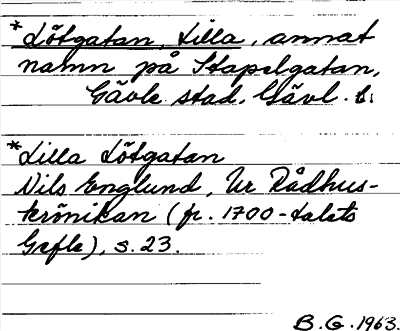 * Lötgatan, Lilla, annat
namn på Stapelgatan,
Gävle stad. Gävl. l.
* Lilla Lötgatan
Nils Englund, Ur Rådhus-
krönikan (fr. 1700-talets
Gefle), s. 23.
B.G. 1963.